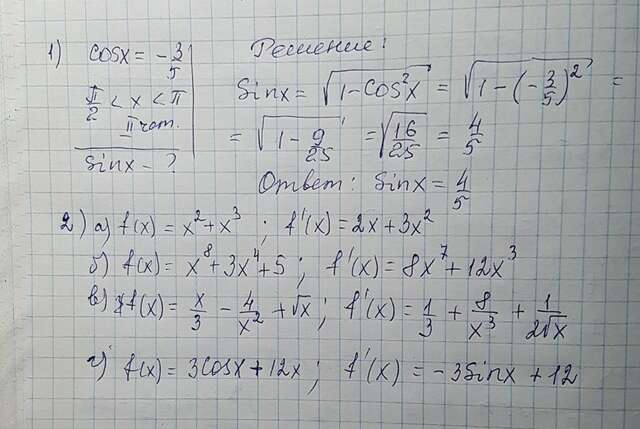 1) cosx = -3/5
π/2 < x < π
II чет.
Sinx - ?
Решение:
Sinx = √(1-cos²x) = √(1-(-3/5)²) =
= √(1-9/25) = √(16/25) = 4/5
Ответ: Sinx = 4/5
2) а) f(x) = x²+x³ ; f'(x) = 2x+3x²
б) f(x) = x⁸+3x⁴+5 ; f'(x) = 8x⁷+12x³
в) f(x) = x/3 - 4/x² + √x ; f'(x) = 1/3 + 8/x³ + 1/2√x
г) f(x) = 3cosx + 12x ; f'(x) = -3Sinx + 12